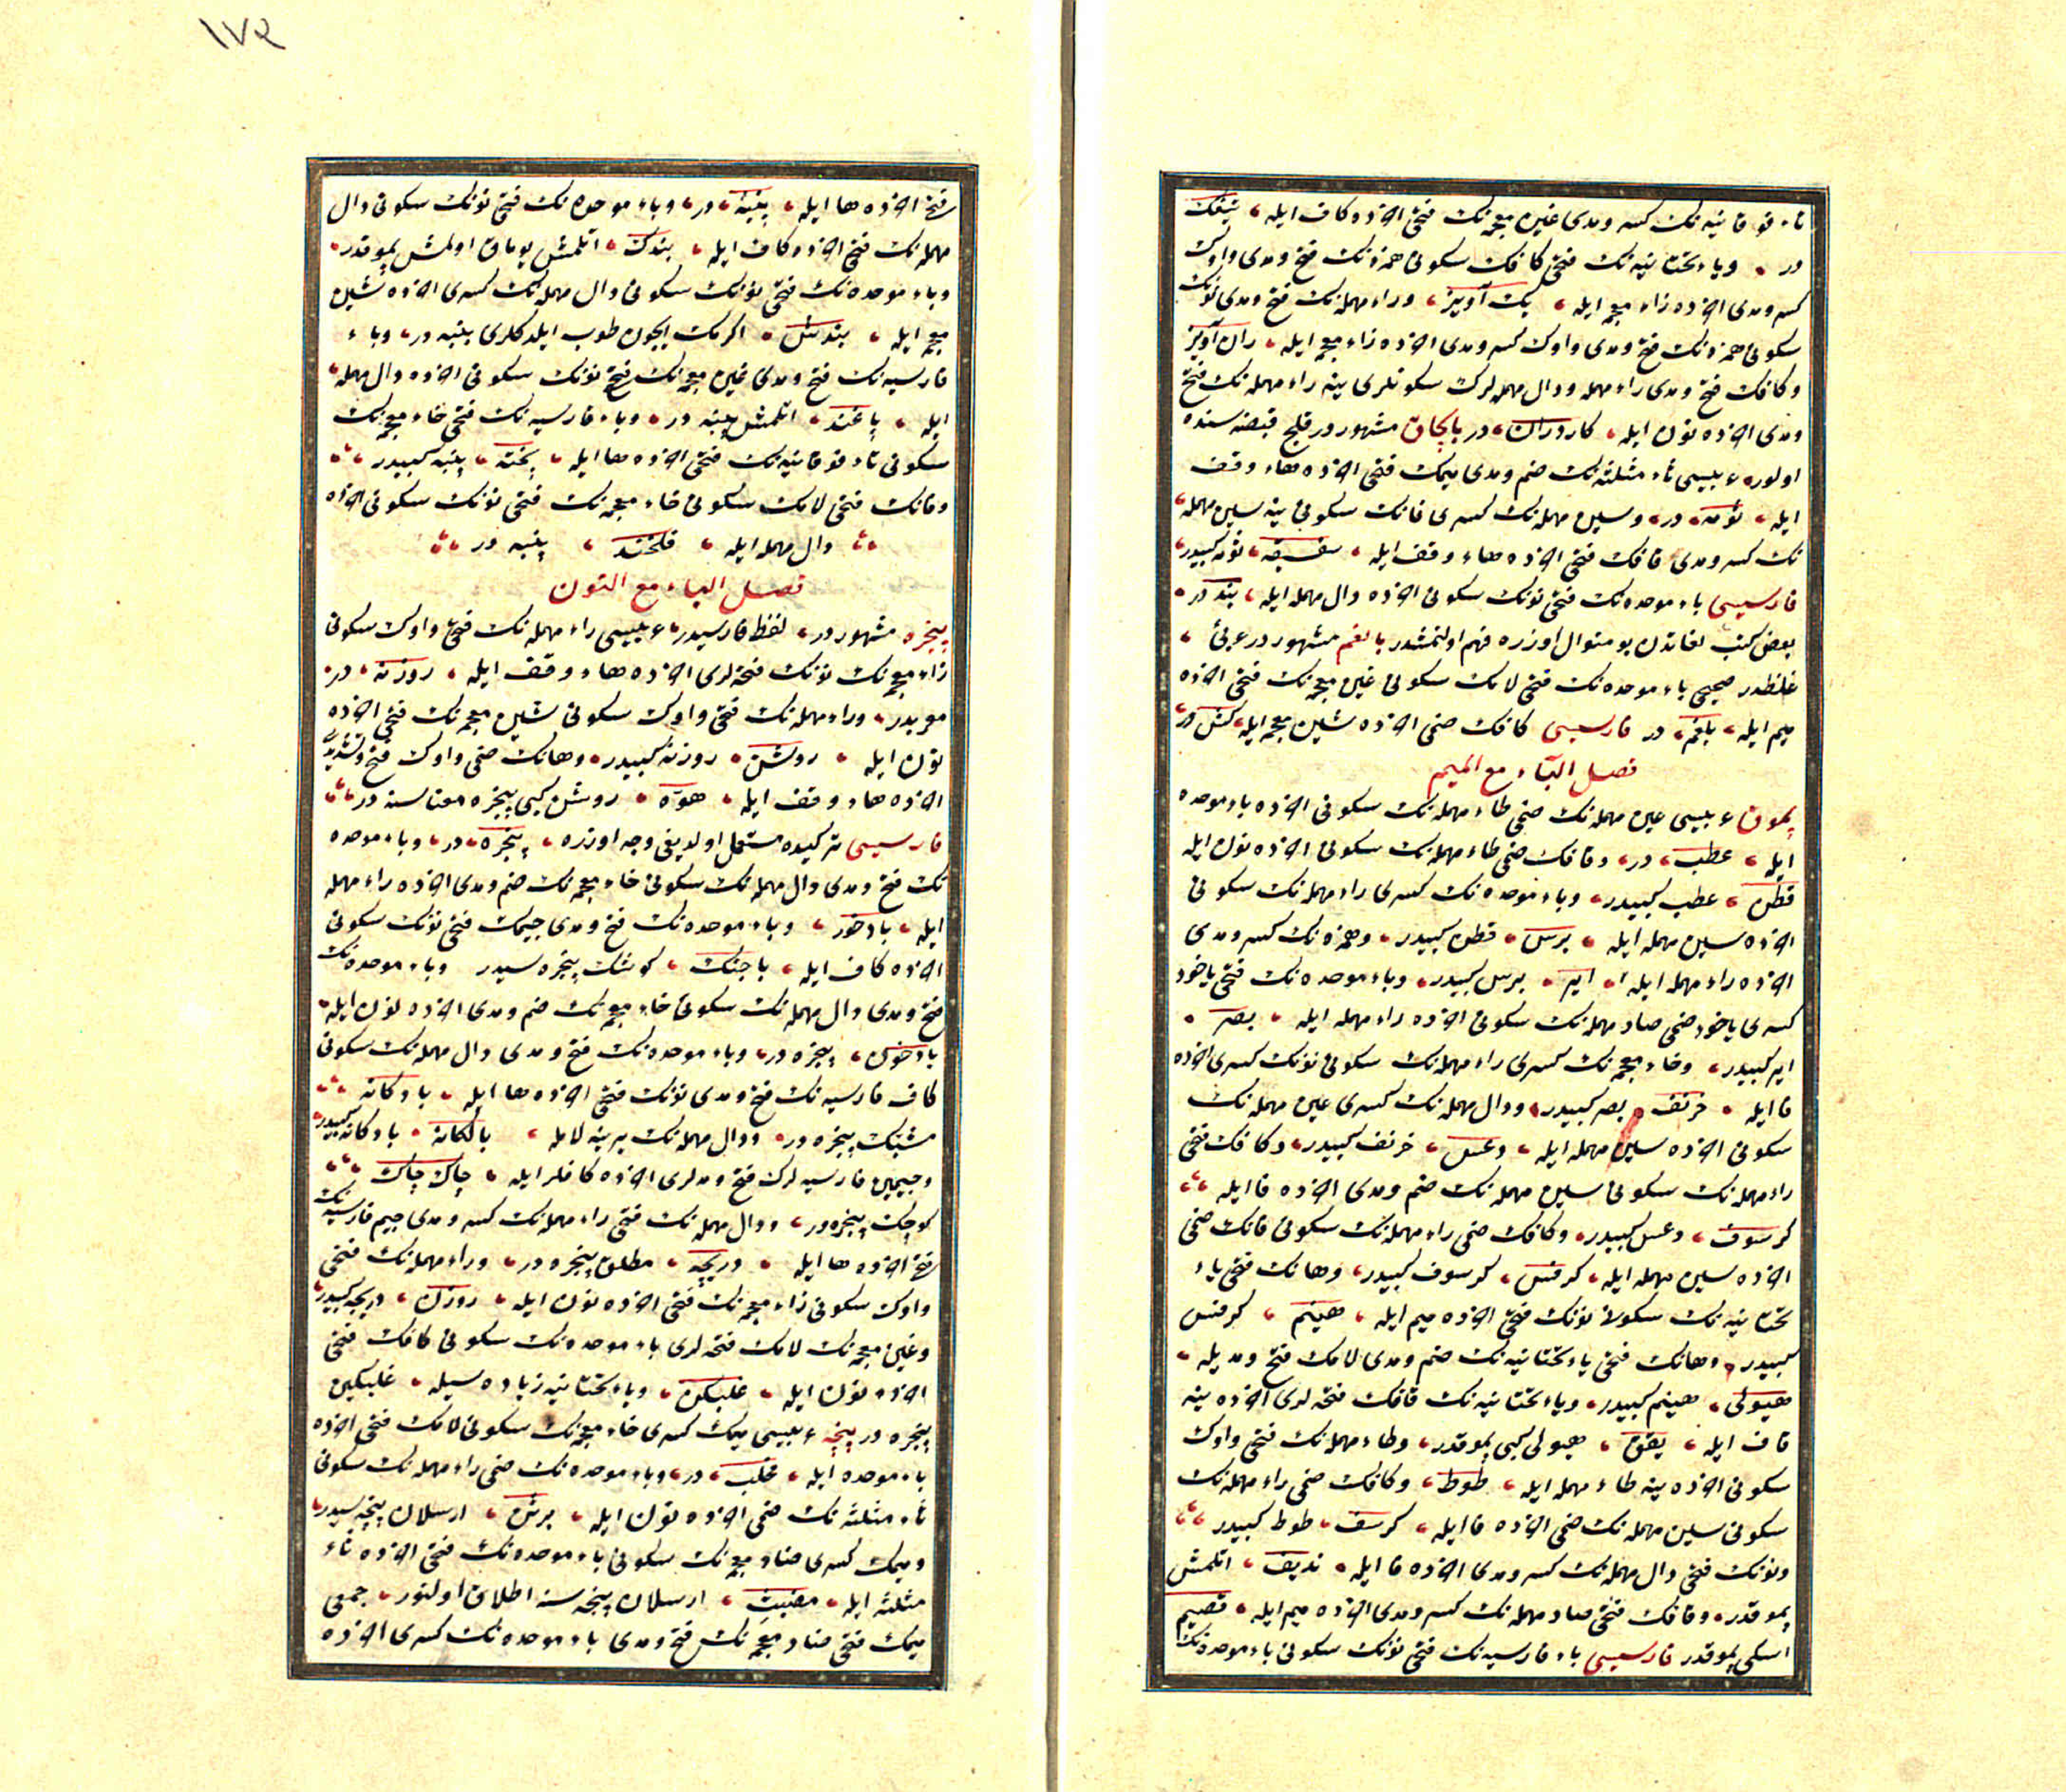 تاء فوقانیه نك كسر و مدی غین معجمه نك فتحی اخرده كاف ایله ، تیغك
در ، و یاء تحتانیه نك فتحی كافك سكونی همزه نك فتح و مدی واوك
كسر و مدی اخرده زاء معجمه ایله ، یك آویز ، و راء مهمله نك فتح و مدی نونك
سكونی همزه نك فتح و مدی واوك كسر و مدی اخرده زاء معجمه ایله ، ران آویز
و كافك فتح و مدی راء مهمله و دال مهمله لرك سكونلری ینه راء مهمله نك فتح
و مدی اخرده نون ایله ، كاردران ، در بالچاق مشهوردر قلج قبضه سنده
اولور عربیسی ثاء مثلثه نك ضم و مدی میمك فتحی اخرده هاء وقف
ایله ، ثومه ، در ، و سین مهمله نك كسری فانك سكونی ینه سین مهمله
نك كسر و مدی قافك فتحی اخرده هاء وقف ایله ، سفسقه ، ثومه كبیدر
فارسیسی باء موحده نك فتحی نونك سكونی اخرده دال مهمله ایله ، بند در ،
بعض كتب لغاتدن بو منوال اوزره فهم اولنمشدر بالغم مشهوردر عربی ،
غلطدر صحیحی باء موحده نك فتحی لامك سكونی غین معجمه نك فتحی اخرده
میم ایله ، بلغم ، در فارسیسی كافك ضمی اخرده شین معجمه ایله ، كش در
فصل الباء مع المیم
پموق عربیسی عین مهمله نك ضمی طاء مهمله نك سكونی اخرده باء موحده
ایله ، عطب ، در ، و قافك ضمی طاء مهمله نك سكونی اخرده نون ایله
قطن ، عطب كبیدر ، و باء موحده نك كسری راء مهمله نك سكونی
اخرده سین مهمله ایله ، برس ، قطن كبیدر ، و همزه نك كسر و مدی
اخرده راء مهمله ایله ، ایر ، برس كبیدر ، و باء موحده نك فتحی یاخود
كسری یاخود ضمی صاد مهمله نك سكونی اخرده راء مهمله ایله ، بصر ،
ایر كبیدر ، و خاء معجمه نك كسری راء مهمله نك سكونی نونك كسری اخرده
فا ایله ، خرنف ، بصر كبیدر ، و دال مهمله نك كسری عین مهمله نك
سكونی اخرده سین مهمله ایله ، دعس ، خرنف كبیدر ، و كافك فتحی
راء مهمله نك سكونی سین مهمله نك ضم و مدی اخرده فا ایله
كرسوف ، دعس كبیدر ، و كافك ضمی راء مهمله نك سكونی فانك ضمی
اخرده سین مهمله ایله ، كرفس ، كرسوف كبیدر ، و هانك فتحی یاء
تحتانیه نك سكونی نونك فتحی اخرده میم ایله ، هینم ، كرفس
كبیدر ، و هانك فتحی یاء تحتانیه نك ضم و مدی لامك فتح و مدیله ،
هیولی ، هینم كبیدر ، و یاء تحتانیه نك قافك فتحه لری اخرده ینه
قاف ایله ، یقق ، هیولی كبی پموقدر ، و طاء مهمله نك فتحی واوك
سكونی اخرده ینه طاء مهمله ایله ، طوط ، و كافك ضمی راء مهمله نك
سكونی سین مهمله نك ضمی اخرده فا ایله ، كرسف ، طوط كبیدر
و نونك فتحی دال مهمله نك كسر و مدی اخرده فا ایله ، ندیف ، اتلمش
پموقدر ، و قافك فتحی صاد مهمله نك كسر و مدی اخرده میم ایله ، قصیم
اسكی پموقدر فارسیسی باء فارسیه نك فتحی نونك سكونی باء موحده نك
١٧٢
فتحی اخرده ها ایله ، پنبه ، در ، و باء موحده نك فتحی نونك سكونی دال
مهمله نك فتحی اخرده كاف ایله ، بندك ، اتلمش یوماق اولمش پموقدر ،
و باء موحده نك فتحی نونك سكونی دال مهمله نك كسری اخرده شین
معجمه ایله ، بندش ، اكرمك ایچون طوب ایلدكلری پنبه در ، و باء
فارسیه نك فتح و مدی غین معجمه نك فتحی نونك سكونی اخرده دال مهمله
ایله ، پاغند ، اتلمش پنبه در ، و باء فارسیه نك فتحی خاء معجمه نك
سكونی تاء فوقانیه نك فتحی اخرده ها ایله ، پخته ، پنبه كبیدر
و فانك فتحی لامك سكونی خاء معجمه نك فتحی نونك سكونی اخرده
دال مهمله ایله ، فلخند ، پنبه در
فصل الباء مع النون
پنجره مشهوردر ، لفظ فارسیدر ، عربیسی راء مهمله نك فتحی واوك سكونی
زاء معجمه نك نونك فتحه لری اخرده هاء وقف ایله ، روزنه ، در ،
معربدر ، و راء مهمله نك فتحی واوك سكونی شین معجمه نك فتحی اخرده
نون ایله ، روشن ، روزنه كبیدر ، و هانك ضمی واوك فتح و تشدیدی
اخرده هاء وقف ایله ، هوه ، روشن كبی پنجره معناسنه در
فارسیسی تركیده مستعمل اولدیغی وجه اوزره ، پنجره ، در ، و باء موحده
نك فتح و مدی دال مهمله نك سكونی خاء معجمه نك ضم و مدی اخرده راء مهمله
ایله ، بادخور ، و باء موحده نك فتح و مدی جیمك فتحی نونك سكونی
اخرده كاف ایله ، باجنك ، كوشك پنجره سیدر و باء موحده نك
فتح و مدی دال مهمله نك سكونی خاء معجمه نك ضم و مدی اخرده نون ایله ،
بادخون ، پنجره در ، و باء موحده نك فتح و مدی دال مهمله نك سكونی
كاف فارسیه نك فتح و مدی نونك فتحی اخرده ها ایله ، بادكانه
مشبك پنجره در ، و دال مهمله نك یرینه لامله ، بالكانه ، بادكانه كبیدر
و جیمین فارسیه لرك فتح و مدلری اخرده كافلر ایله ، چاك چاك
كوچك پنجره در ، و دال مهمله نك فتحی راء مهمله نك كسر و مدی جیم فارسیه نك
فتحی اخرده ها ایله ، دریچه ، مطلق پنجره در ، و راء مهمله نك فتحی
واوك سكونی زاء معجمه نك فتحی اخرده نون ایله ، روزن ، دریچه كبیدر
و غین معجمه نك لامك فتحه لری باء موحده نك سكونی كافك فتحی
اخرده نون ایله ، غلبكن ، و یاء تحتانیه زیاده سیله ، غلبكین
پنجره در پنچه عربیسی میمك كسری خاء معجمه نك سكونی لامك فتحی اخرده
باء موحده ایله ، مخلب ، در ، و باء موحده نك ضمی راء مهمله نك سكونی
ثاء مثلثه نك ضمی اخرده نون ایله ، برثن ، ارسلان پنچه سیدر
و میمك كسری ضاد معجمه نك سكونی باء موحده نك فتحی اخرده ثاء
مثلثه ایله ، مضبث ، ارسلان پنجه سنه اطلاق اولنور ، جمعی
میمك فتحی ضاد معجمه نك فتح و مدی باء موحده نك كسری اخرده